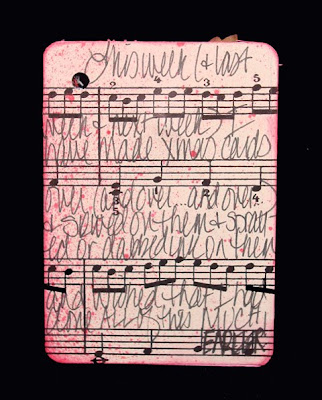 this week (& last
2 4 3 5
week & next week) I
have made xmas cards
1 2 4
over and over...and over...
3
5
& on them & splatt
ed or dabbed ink on them
and wished that I had
done ALL of this MUCH
EARLIER